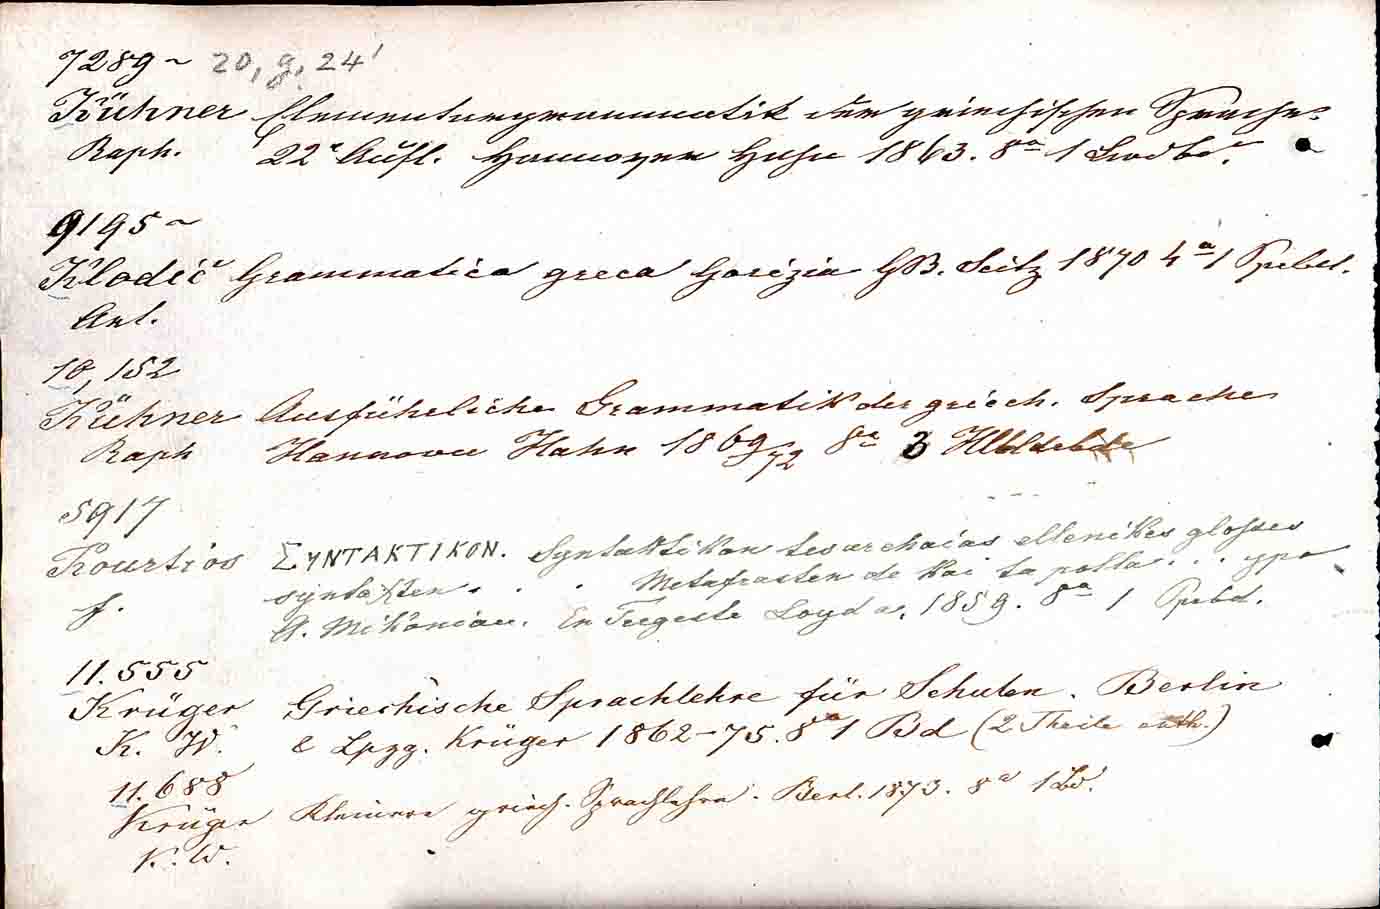 7289~ 20, g, 24'
Kühner Elementargrammatik der griechischen Sprache.
Raph. 22e Aufl. Hannover Hahn 1863. 8a 1
9195~
Klodič Grammatica greca Gorizia GB. Seitz 1870 4a 1 Ppbd.
Ant.
10,152
Kühner Ausführliche Grammatik der griech. Sprache
Raph Hannover Hahn 1869/72 8a 3
5917
Kourtios ΣYNTAKTIKON. Syntaktikon tes archaias ellenikes glosses
f. syntaxten . . . Metafrasten de kai ta polla . . . ypo
A. Mikonian. En Tergeste Loyd a. 1859. 8a 1 Ppbd.
11.555
Krüger Griechische Sprachlehre für Schulen. Berlin
K. W. & Lpzg. Krüger 1862-75. 8a 1 Bd (2 Theile enth.)
11.688
Krüger Kleinere griech. Sprachlehre. Berl. 1873. 8a 1 Ld.
K. W.